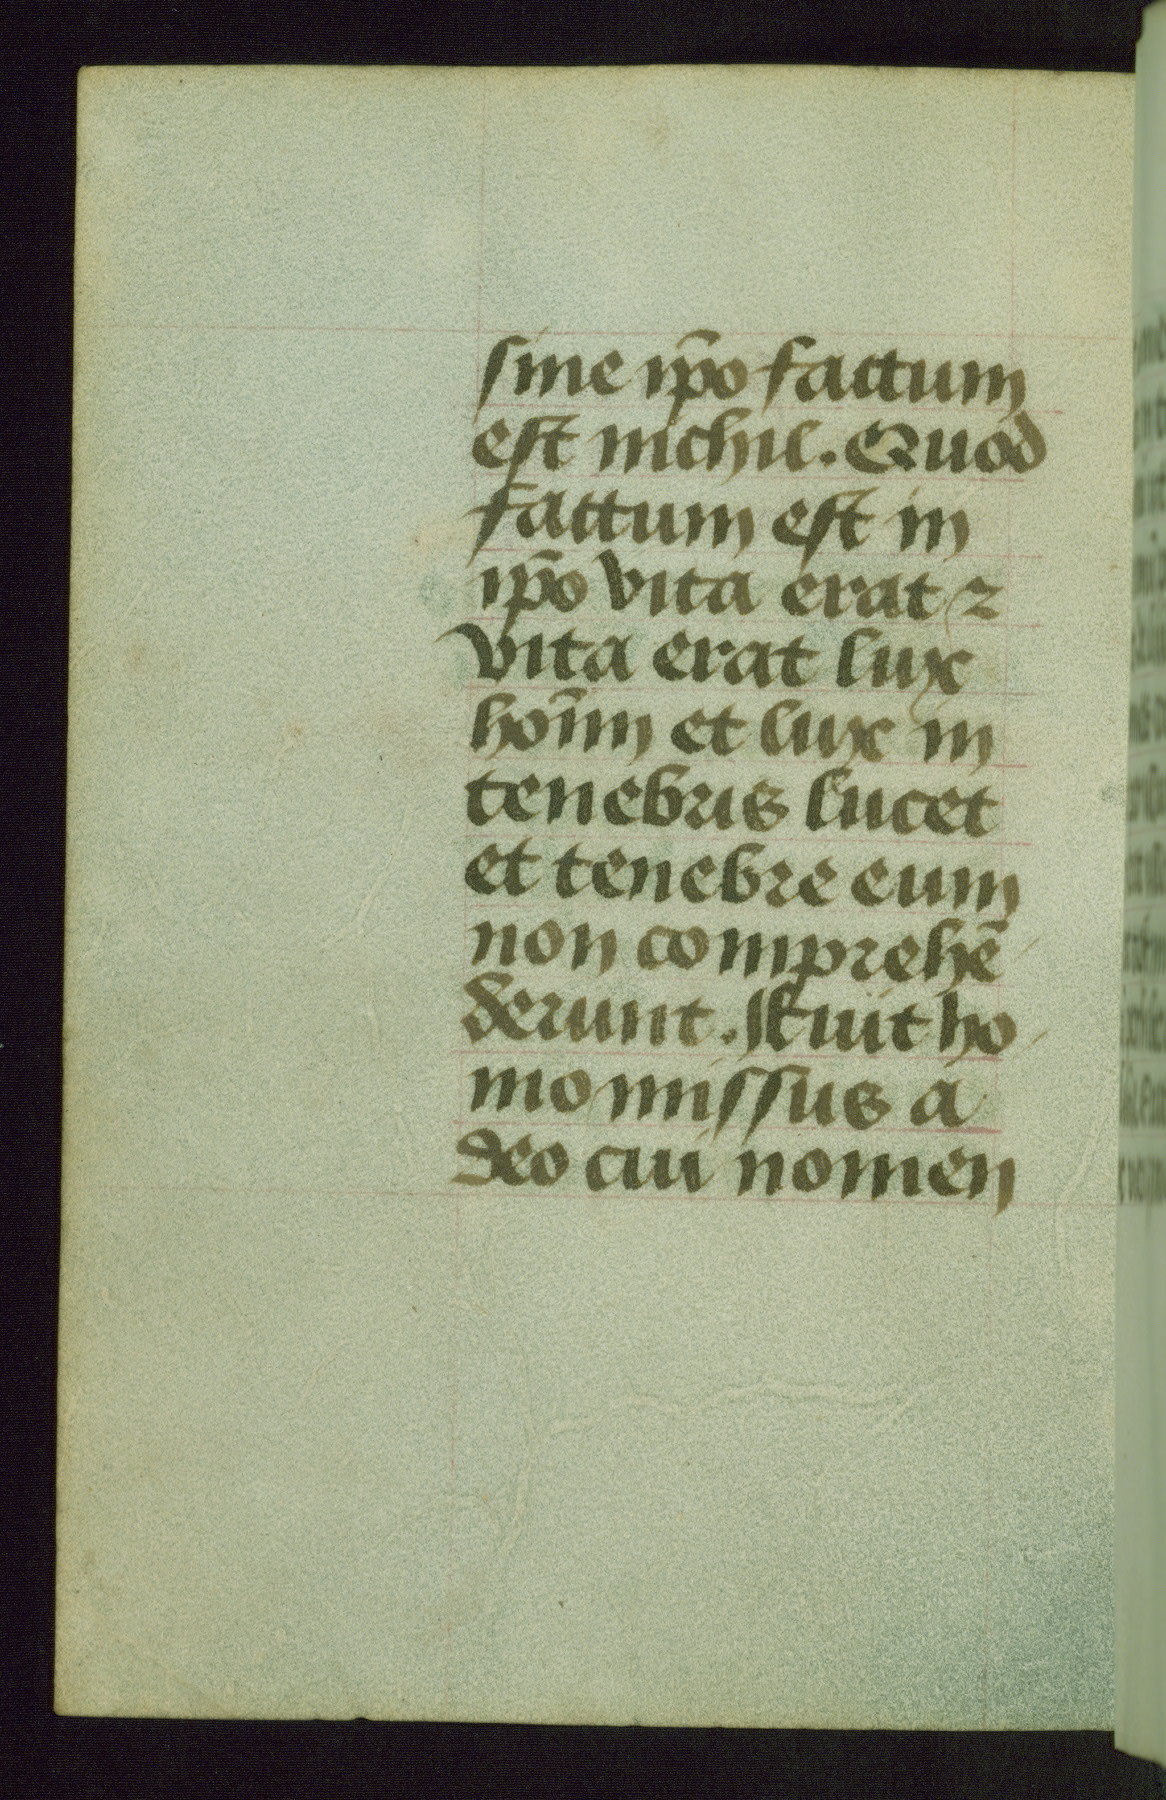 sine ip̄o factum
est nichil. Quod
factum est in
ip̄o vita erat ⁊
vita erat lux
hoīm et lux in
tenebris lucet
et tenebre eum
non comprehē
derunt. Fuit ho
mo missus a
deo cui nomen